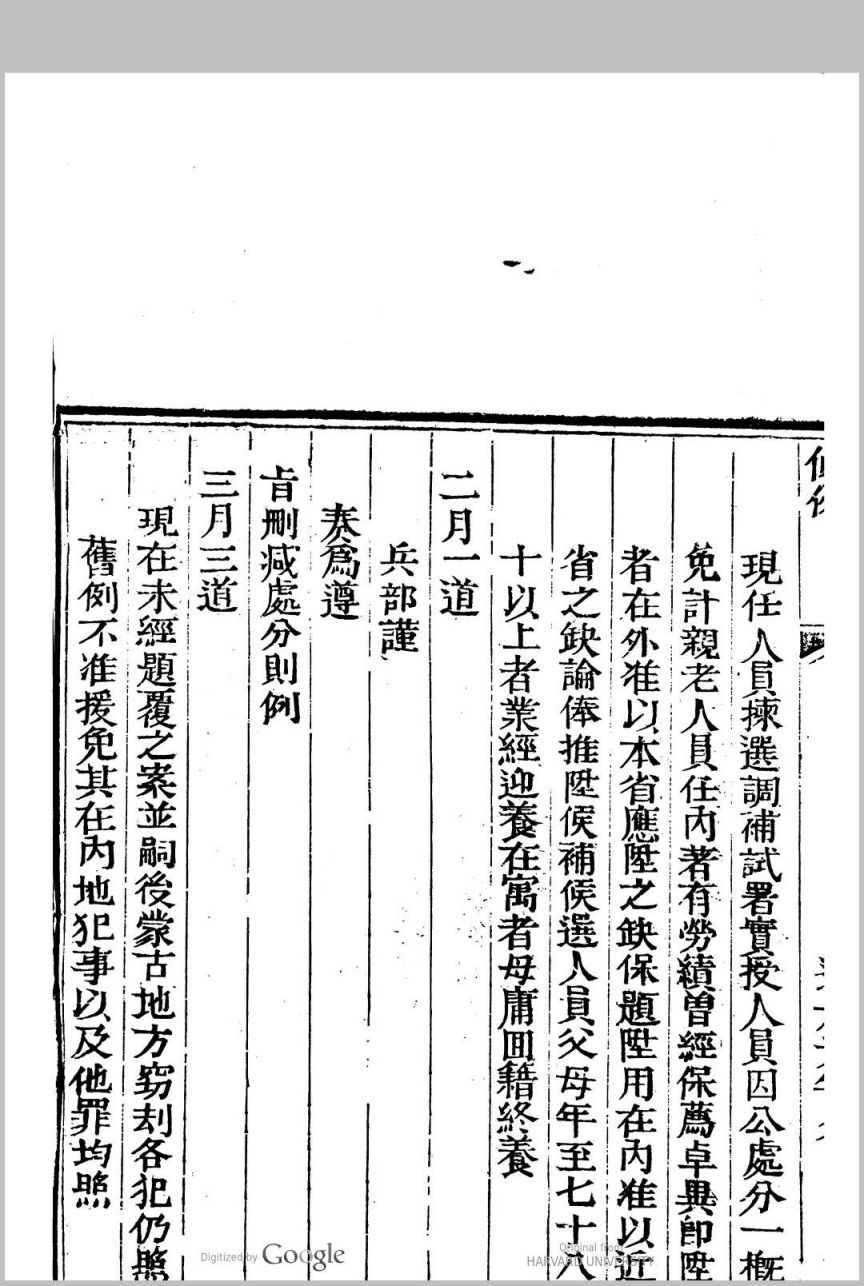 現任人員揀選調補試署實授人員因公處分一概
免計親老人員任內著有勞績曾經保薦卓異卽陞
者在外准以本省應陞之缺保題陞用在內准以近
省之缺論俸推陞候補候選人員父母年至七十八
十以上者業經迎養在寓者毋庸囬籍終養
二月一道
兵部謹
奏爲遵
旨刪减處分則例
三月三道
現在未經題覆之案並嗣後蒙古地方竊刦各犯仍照
舊例不准援免其在內地犯事以及他罪均照
Digitized by Google
Original from
HARVARD UNIVERSITY